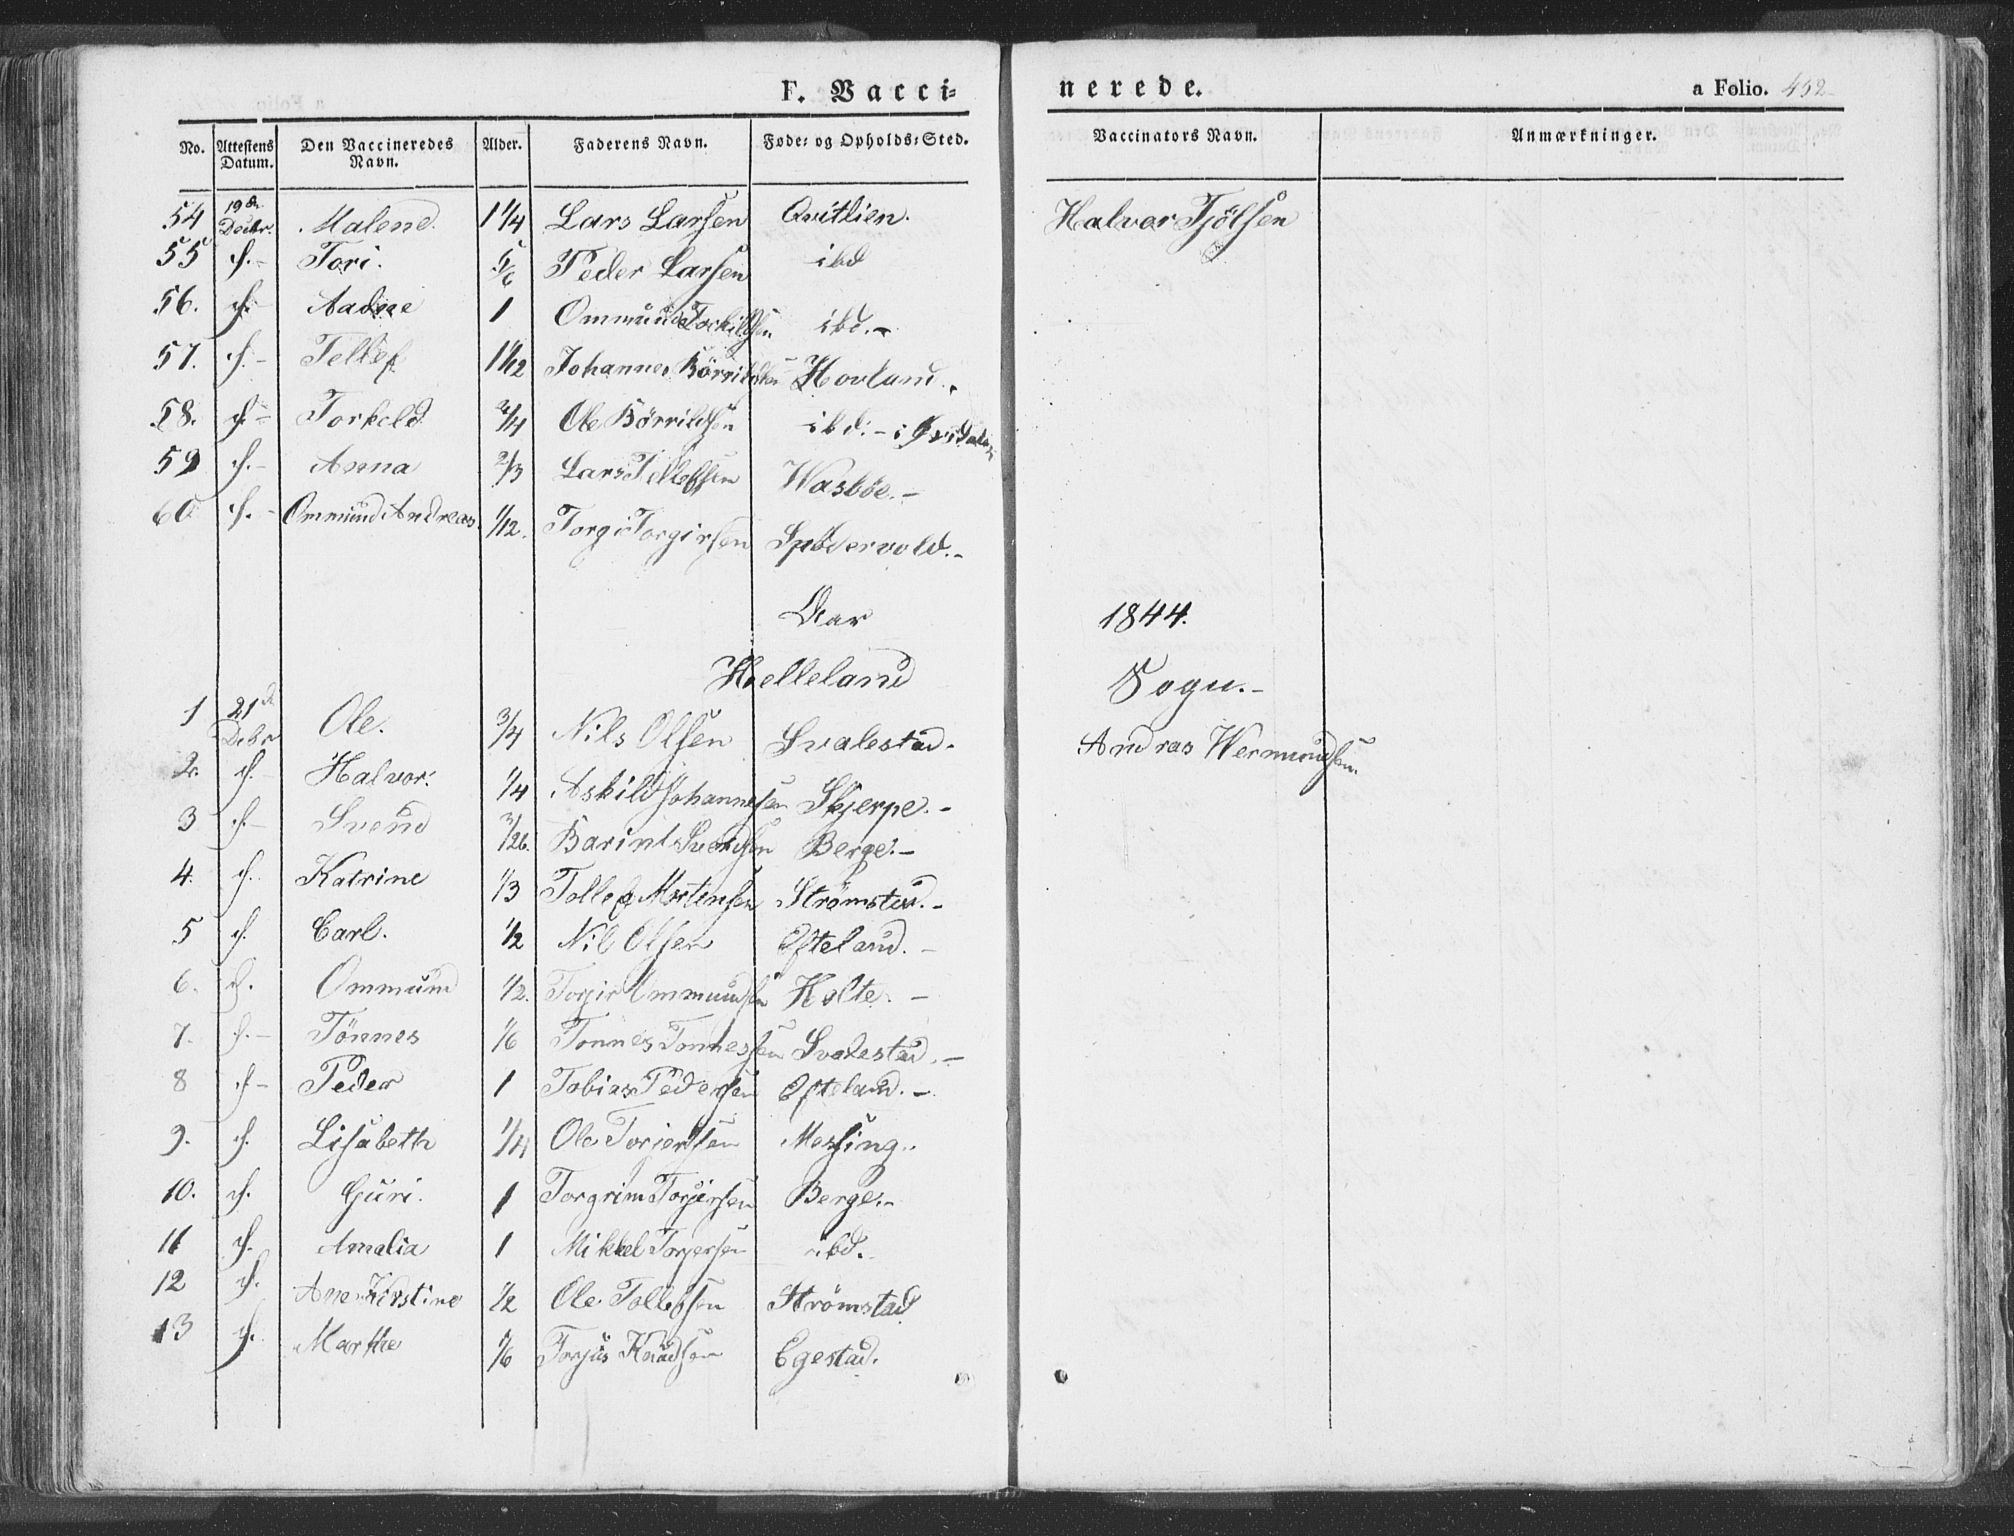 F. Vacci=
nerede.
a Folio. 452
No. Attestens Datum. Den Vaccineredes Navn. Alder. Faderens Navn. Føde= og Opholds=Sted. Vaccinators Navn. Anmærkninger.
54 19de Decbr. Malene. 1 1/4 Lars Larsen Qvitlien. Halvor Tjölsen
55 d.- Tori. 5/6 Peder Larsen ibd
56. d.- Aadne 1 Ommund Torkildsen ibd.-
57. d.- Tellef 1 1/12 Johannes Börrildsen Hovland.
58. d.- Torkeld /4 Ole Börrildsen ibd.- i
59 d.- Anna 2/3 Lars Tellefsen Wasböe.-
60 d.- Ommund Andreas 1/12. Torgi Torgirsen Spödervold.-
Aar 1844.
Helleland Sogn.-
1 21de Debr Ole. 3/4 Nils Olsen Svalestad. Andras Wermundsen.
2. d.- Halvor. 1/4 Askild Johannesen Skjerpe.-
3 d.- Svend 3/26. Barint Svendsen Berge.-
4. d.. Katrine 1/3 Tollef Mortensen Strömstad.-
5 d. Carl. 1/2 Nils Olsen Efteland.-
6. d. Ommund 1/2. Torjir Ommundsen Holte.-
7. d.- Tönnes 1/6 Tonnes Tonnessen Svalestad.-
8 d- Peder 1 Tobias Pedersen Efteland.-
9. d. Lisabeth 1/4 Ole Torjersen Messing..
10. d. Guri. 1 Torgrim Torjersen Berge.-
11 d. Amalia 1 Mikkel Torjersen ibd.
12 d. Ane Kirstine 1/2 Ole Tollefsen Strömstad
13 d. Marthe 1/6 Torjus Knudsen Egestad.